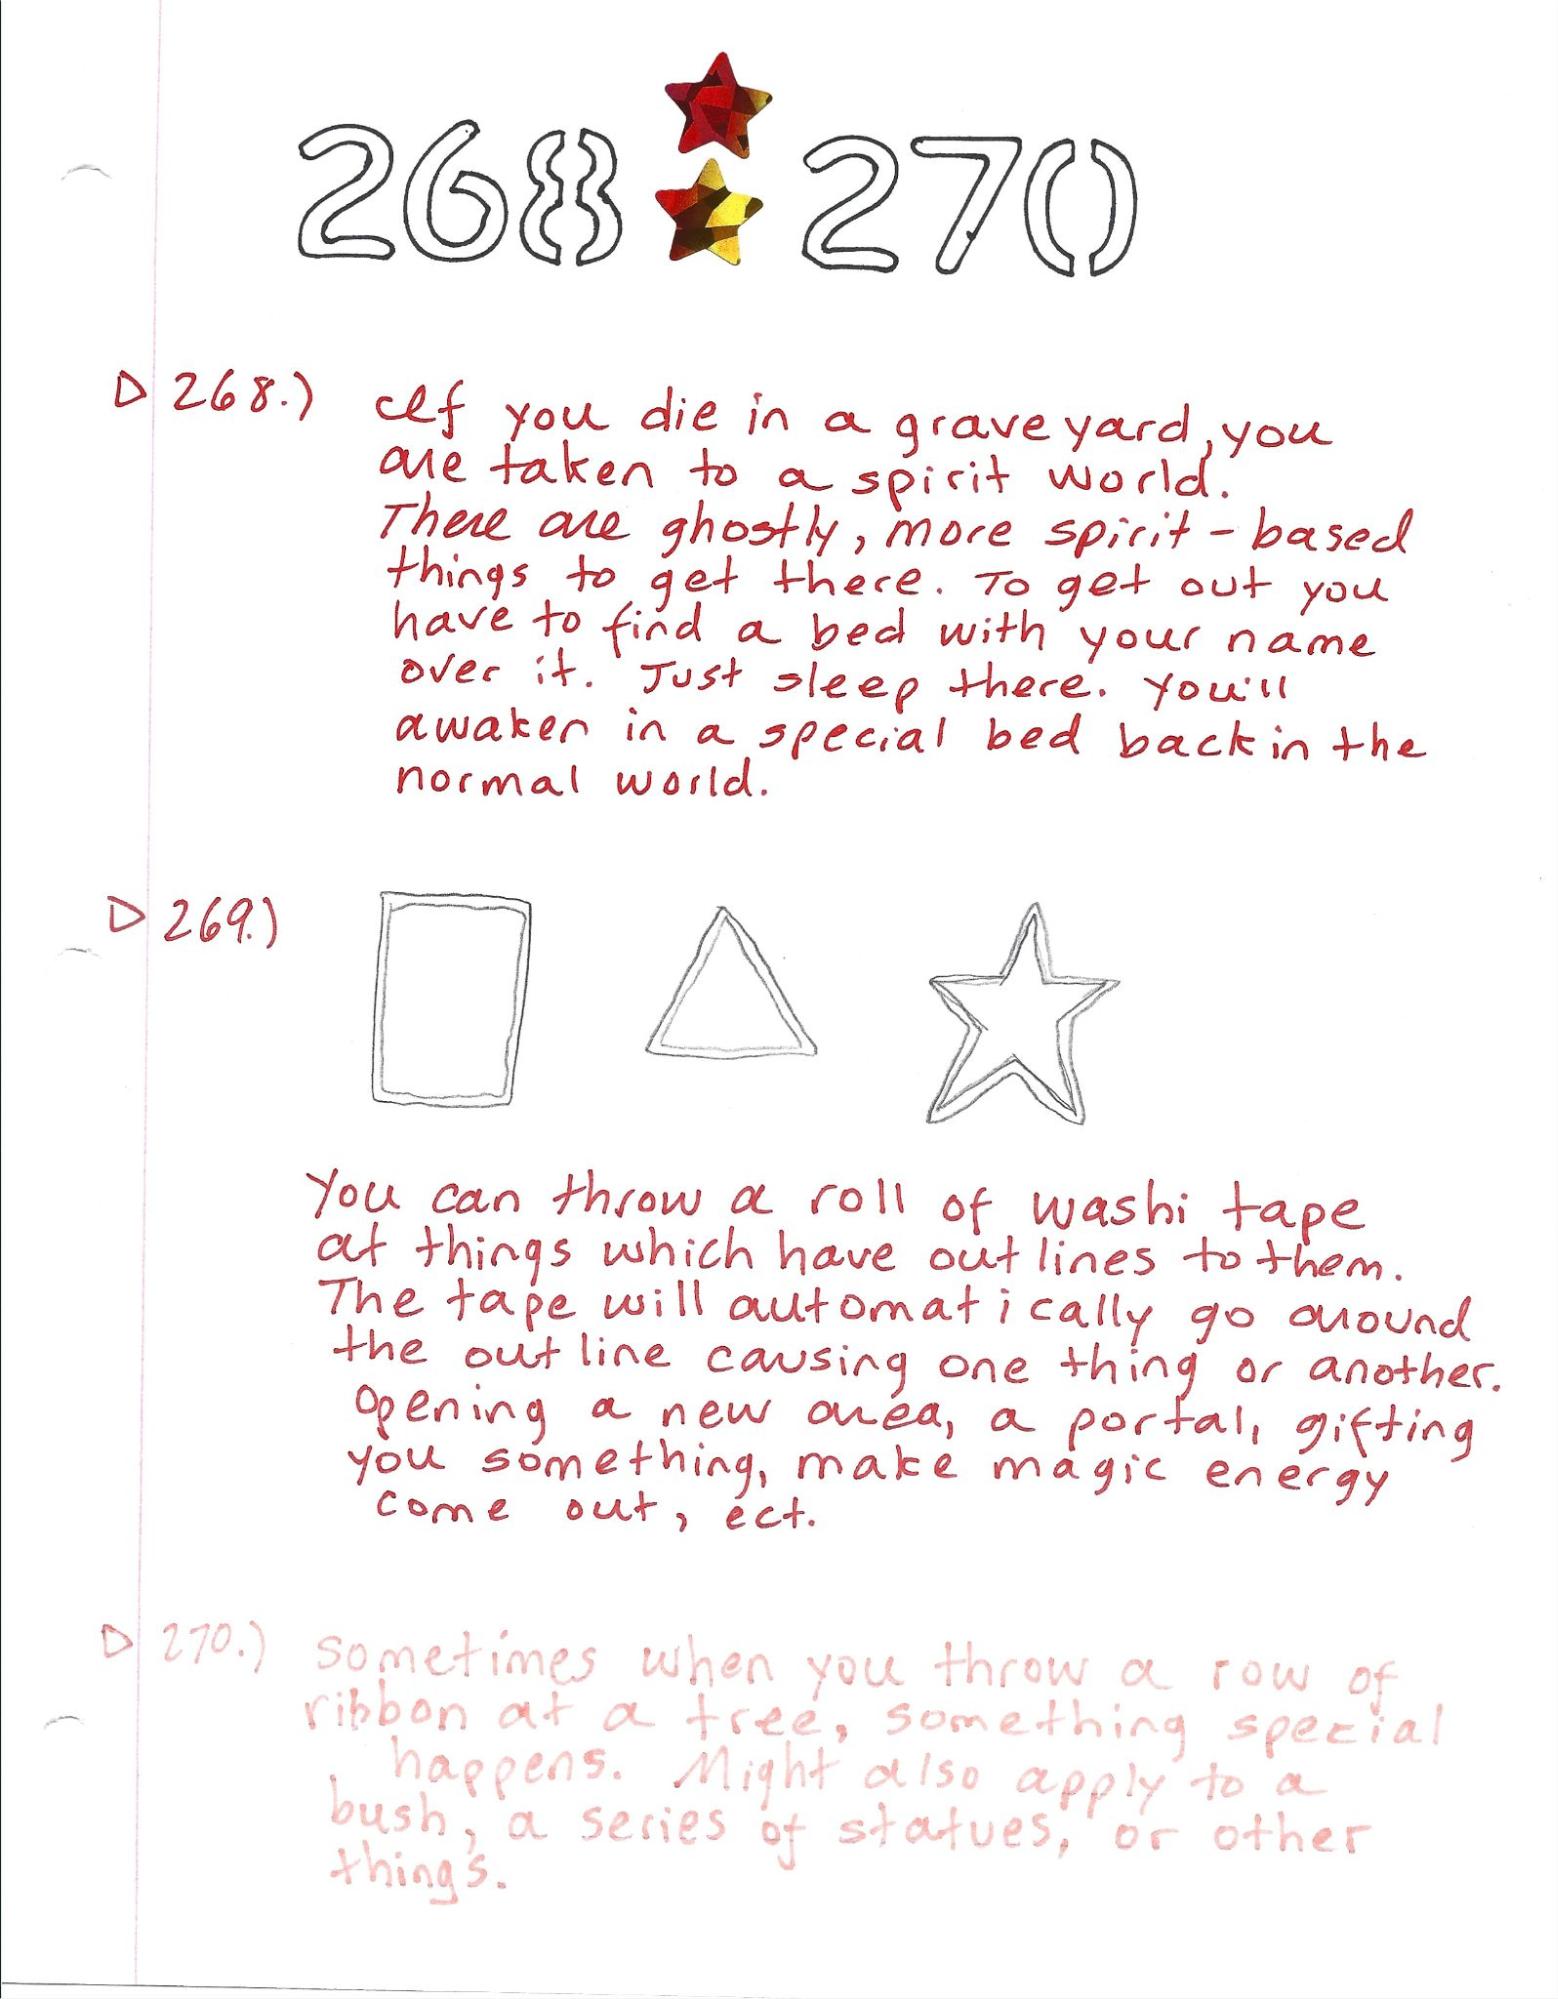 268 270
268.) If you die in a graveyard, you
are taken to a spirit world.
There are ghostly, more spirit-based
things to get there. To get out you
have to find a bed with your name
over it. Just sleep there. You'll
awaken in a special bed back in the
normal world.
269.)
You can throw a roll of washi tape
at things which have outlines to them.
The tape will automatically go around
the outline causing one thing or another.
Opening a new area, a portal, gifting
you something, make magic energy
come out, ect.
270.) Sometimes when you throw a row of
ribbon at a tree, something special
happens. Might also apply to a
bush, a series of statues, or other
things.